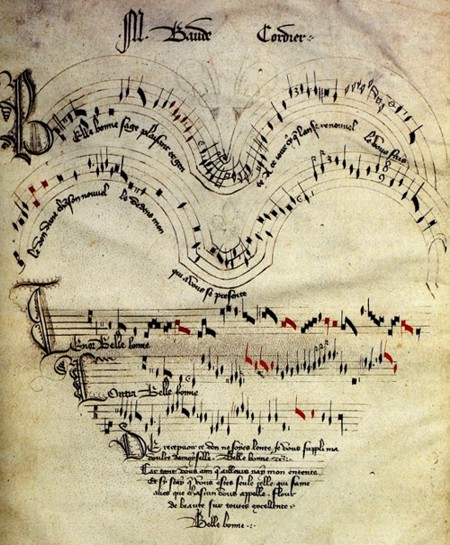 M. Baude Cordier
Belle bonne sage plaisant et gen
ce Jour cy que l'an se renouvel
le vous fais
le don dune chanson nouvel
le dedens mon
qui a vous se presente
Tenor Belle bonne
Contra Belle bonne
De recepvoir ce don ne soyes lente Je vous suppli ma
doulce damoyselle Belle bonne
Car tant vous aim qu'aillours nay mon entente
et sy scay que vous estes seule celle qui fame
aves que chascun vous appelle flour
de beaute sur toutes excellente
Belle bonne